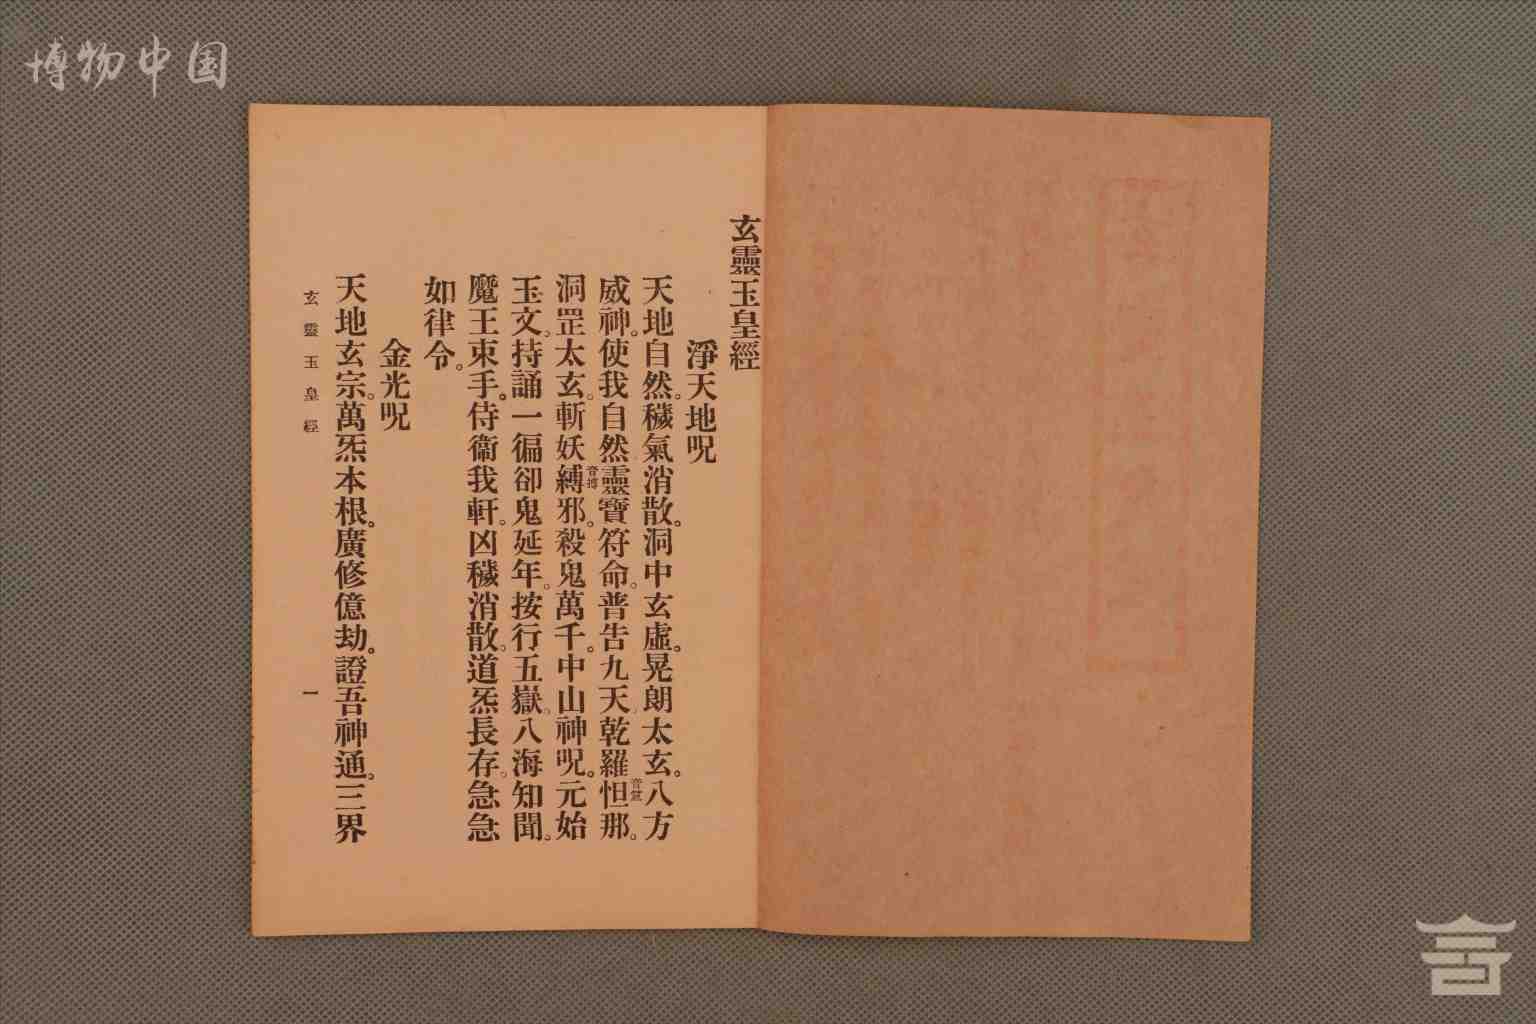 博物中国
玄靈玉皇經
淨天地呪
天地自然。穢氣消散。洞中玄虛。晃朗太玄。八方
威神。使我自然靈寶符命。普告九天乾羅怛音
那。
洞罡太玄。斬妖縛音邪。殺鬼萬千。中山神呪。元始
玉文。持誦一徧卻鬼延年。按行五嶽。八海知聞。
魔王束手。侍衞我軒。凶穢消散。道炁長存。急急
如律令。
金光呪
天地玄宗。萬炁本根。廣修億劫。證吾神通。三界
玄靈玉皇經
一